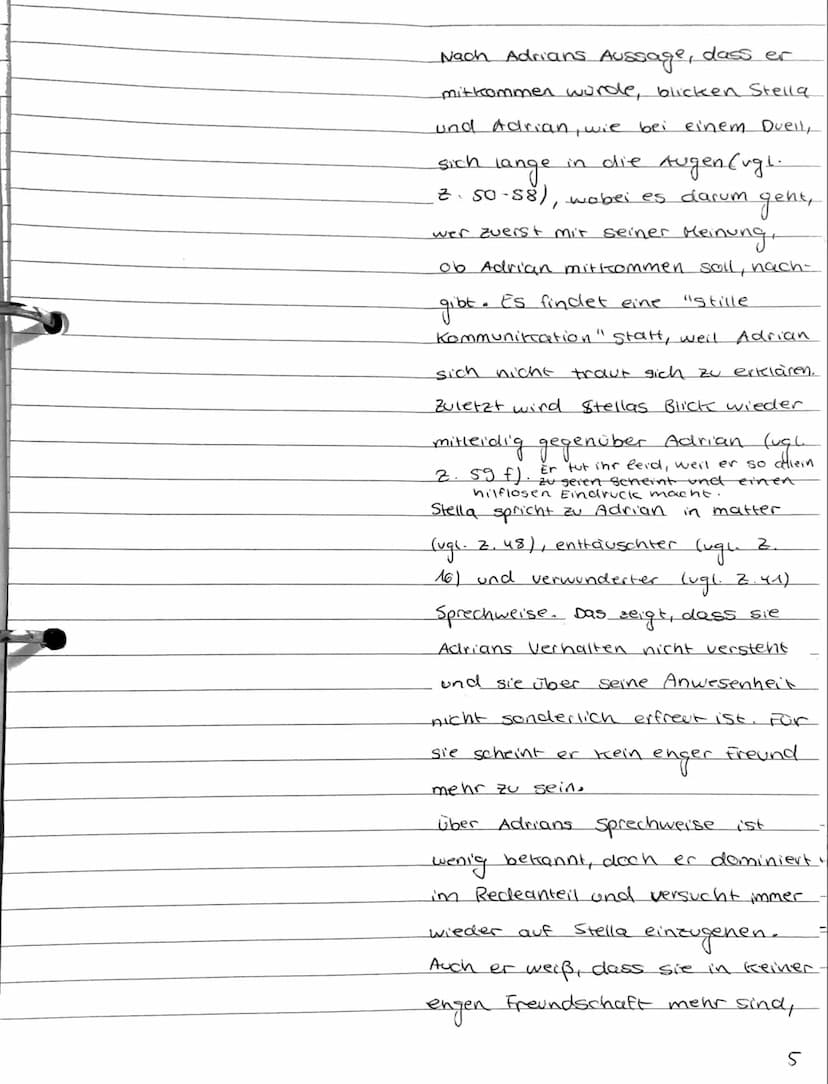 Nach Adrians Aussage, dass er
mitkommen würde, blicken Stella
und Adrian, wie bei einem Duell,
sich lange in die Augen (vgl.
Z. 50-58), wobei es darum geht,
wer zuerst mit seiner Meinung,
ob Adrian mitkommen soll, nach-
gibt. Es findet eine "stille
Kommunikation" statt, weil Adrian
sich nicht traut sich zu erklären.
Zuletzt wird Stellas Blick wieder
mitleidig gegenüber Adrian (vgl.
Z. 59 f). Er tut ihr leid, weil er so allein
zu seien scheint und einen
hilflosen Eindruck macht.
Stella spricht zu Adrian in matter
(vgl. Z. 48), enttäuschter (vgl. Z.
16) und verwunderter (vgl. Z. 41)
Sprechweise. Das zeigt, dass sie
Adrians Verhalten nicht versteht
und sie über seine Anwesenheit
nicht sonderlich erfreut ist. Für
sie scheint er kein enger Freund
mehr zu sein.
Über Adrians Sprechweise ist
wenig bekannt, doch er dominiert
im Redeanteil und versucht immer
wieder auf Stella einzugehen.
Auch er weiß, dass sie in keiner
engen Freundschaft mehr sind,
5